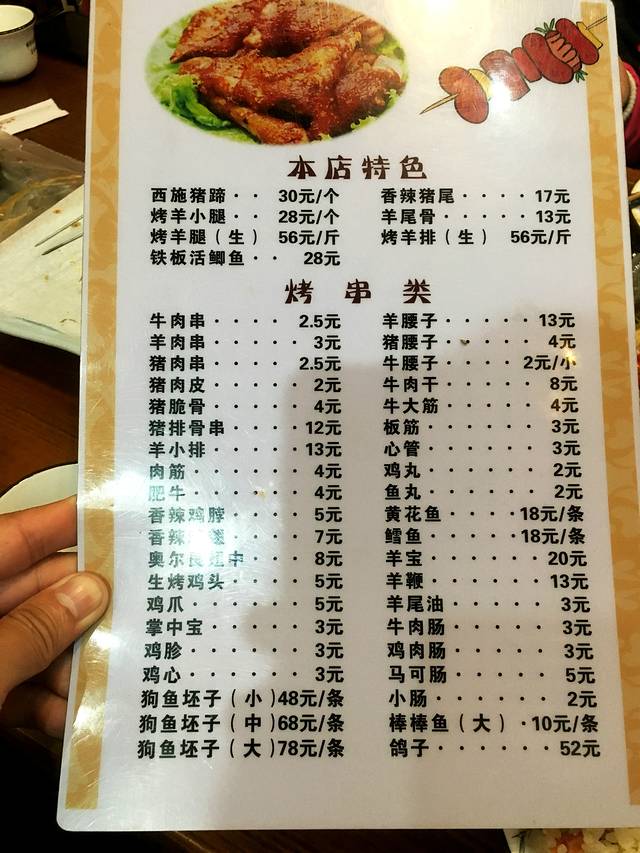 本店特色
西施猪蹄·· 30元/个
烤羊小腿·· 28元/个
烤羊腿(生) 56元/斤
铁板活鲫鱼·· 28元
香辣猪尾···· 17元
羊尾骨····· 13元
烤羊排(生) 56元/斤
烤串类
牛肉串···· 2.5元
羊肉串····· 3元
猪肉串···· 2.5元
猪肉皮····· 2元
猪脆骨····· 4元
猪排骨串···· 12元
羊小排····· 13元
肉筋······ 4元
肥牛······ 4元
香辣鸡脖···· 5元
香辣 7元
奥尔良 中· 8元
生烤鸡头···· 5元
鸡爪······ 5元
掌中宝····· 3元
鸡胗······ 3元
鸡心······ 3元
狗鱼坯子(小)48元/条
狗鱼坯子(中)68元/条
狗鱼坯子(大)78元/条
羊腰子····· 13元
猪腰子····· 4元
牛腰子···· 2元/小
牛肉干····· 8元
牛大筋····· 4元
板筋······ 3元
心管······ 3元
鸡丸······ 2元
鱼丸······ 2元
黄花鱼····18元/条
鳕鱼·····18元/条
羊宝······ 20元
羊鞭······ 13元
羊尾油····· 3元
牛肉肠····· 3元
鸡肉肠····· 3元
马可肠····· 5元
小肠······ 2元
棒棒鱼(大)·10元/条
鸽子······ 52元